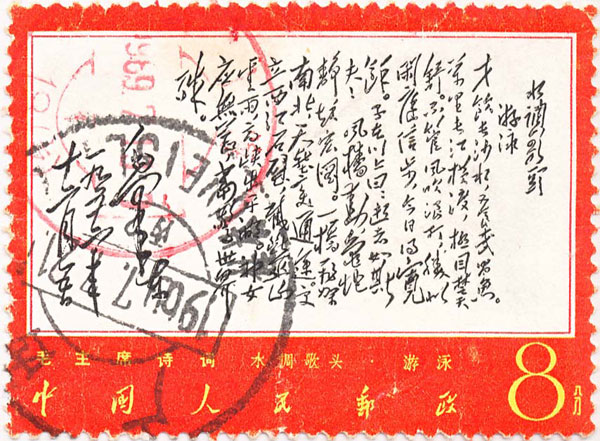 水调歌头
游泳
才饮长沙水,又食武昌魚。
萬里长江横渡,极目楚天
舒。不管风吹浪打,胜似
闲庭信步,今日得宽
馀。子在川上曰:逝者如斯
夫!风樯动,龟蛇
静,起宏图。一桥飞架
南北,天堑变通途。更
立西江石壁,截断巫山
云雨,高峡出平湖。神女
应無恙,当惊世界
殊。
毛泽东
一九五六年
十二月五日
1969.7
1969.7
毛主席诗词 水调歌头·游泳
中国人民郵政
8分